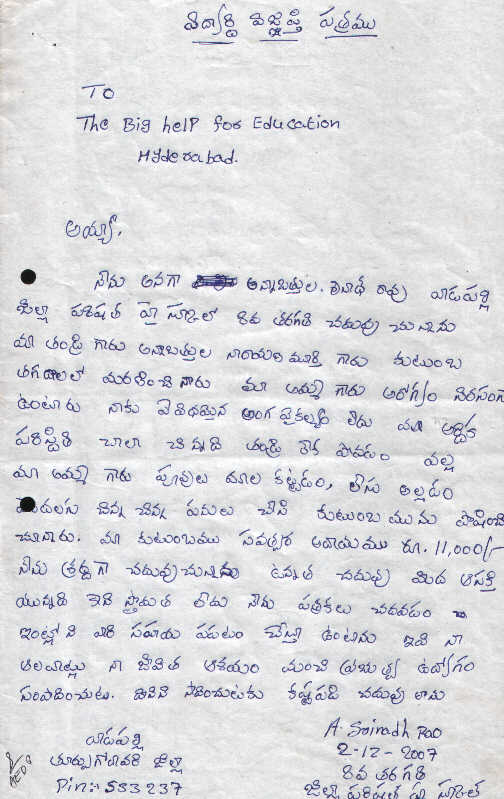 విద్యార్ధి విజ్ఞప్తి పత్రము
To
The Big help for Education
Hyderabad.
అయ్యా,
నేను అనగా అన్నాబత్తుల. శ్రీనాథ్ రావు వాడపల్లి
జిల్లా పరిషత్ హై స్కూల్లో 8వ తరగతి చదువు చున్నాను
మా తండ్రి గారు అన్నాబత్తుల నారాయణ మూర్తి గారు కుటుంబ
తగదాలలో మరణించినారు మా అమ్మ గారు ఆరోగ్యం నిరసంగా
ఉంటారు నాకు ఏ విధమైన అంగ వైకల్యం లేదు మా ఆర్థిక
పరిస్థితి చాలా చిన్నది తండ్రి లేక పోవడం వల్ల
మా అమ్మ గారు పూవులు మాల కట్టడం, లేసు అల్లడం
మొదలగు చిన్న చిన్న పనులు చేసి కుటుంబ మును పోషించు
చూనారు. మా కుటుంబము సవత్సర ఆదాయము రూ. 11,000/-
నేను శ్రద్దగా చదువుచున్నాను ఉన్నత చదువు మీద ఆసక్తి
యున్నది ఇది స్తొమత లేదు నేను పత్రికలు చదవడం
ఇంట్లోని వారి సహాయ పడటం చేస్తూ ఉంటాను ఇది నా
అలవాట్లు నా జీవిత ఆశయం మంచి ప్రభుత్వ ఉద్యోగం
సంపాదించుట. దీనిని సాదించుటకు కష్టపడి చదువు తాను
A. Srinadh Rao
వాడపల్లి 2-12-2007
తూర్పుగోదావరి జిల్లా 8వ తరగతి
Pin:- 533 237 జిల్లా పరిషత్ హై స్కూల్